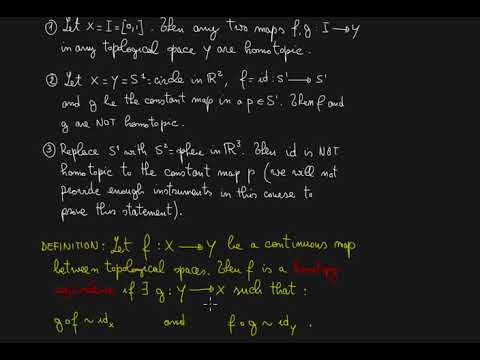 ① Let X = I = [0,1]. Then any two maps f, g : I → Y
in any toplogical space Y are homotopic.
② Let X = Y = S¹ = circle in ℝ², f = id : S¹ → S¹
and g be the constant map in a p ∈ S¹. Then f and
g are NOT homotopic.
③ Replace S¹ with S² = sphere in ℝ³. Then id is NOT
homotopic to the constant map p (we will not
provide enough instruments in this course to
prove this statement).
DEFINITION: Let f : X → Y be a continuous map
between topological spaces. Then f is a homotopy
equivalence if ∃ g : Y → X such that :
g∘f ~ id_X and f∘g ~ id_Y .